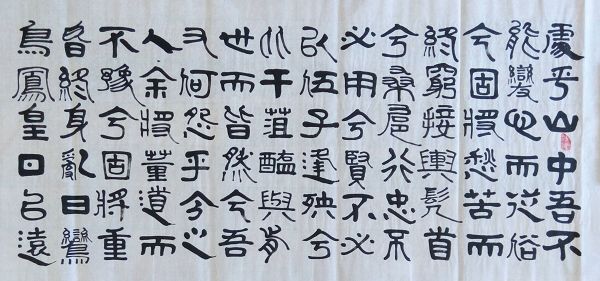 處乎山中吾不
能變心而從俗
兮固將愁苦而
終窮接輿髡首
兮桑扈行忠不
必用兮賢不必
以伍子逢殃兮
比干菹醢與前
世而皆然兮吾
又何怨乎今之
人余將董道而
不豫兮固將重
昏終身亂曰鸞
鳥鳳皇日以遠